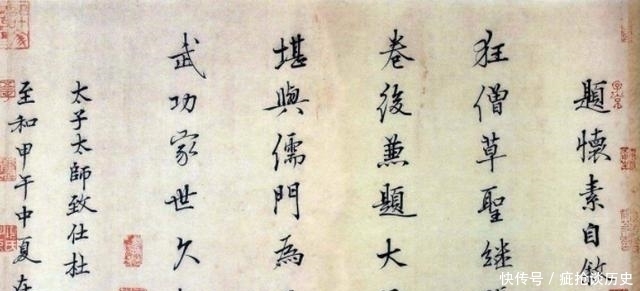 題懷素自
狂僧草聖継
卷後兼題大
堪與儒門為
武功家世久
太子太師致仕杜
至和甲午中夏在
快传号 / 疵抢谈历史